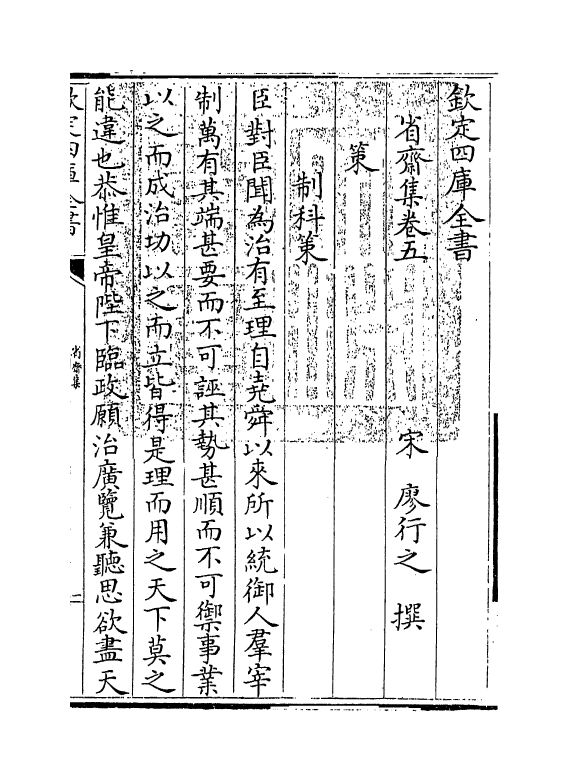 欽定四庫全書
省齋集卷五
宋 廖行之 撰
策
制科策
臣對臣聞為治有至理自堯舜以來所以統御人羣宰
制萬有其端甚要而不可誣其勢甚順而不可禦事業
以之而成治功以之而立皆得是理而用之天下莫之
能違也恭惟皇帝陛下臨政願治廣覽兼聽思欲盡天
欽定四庫全書
省齋集